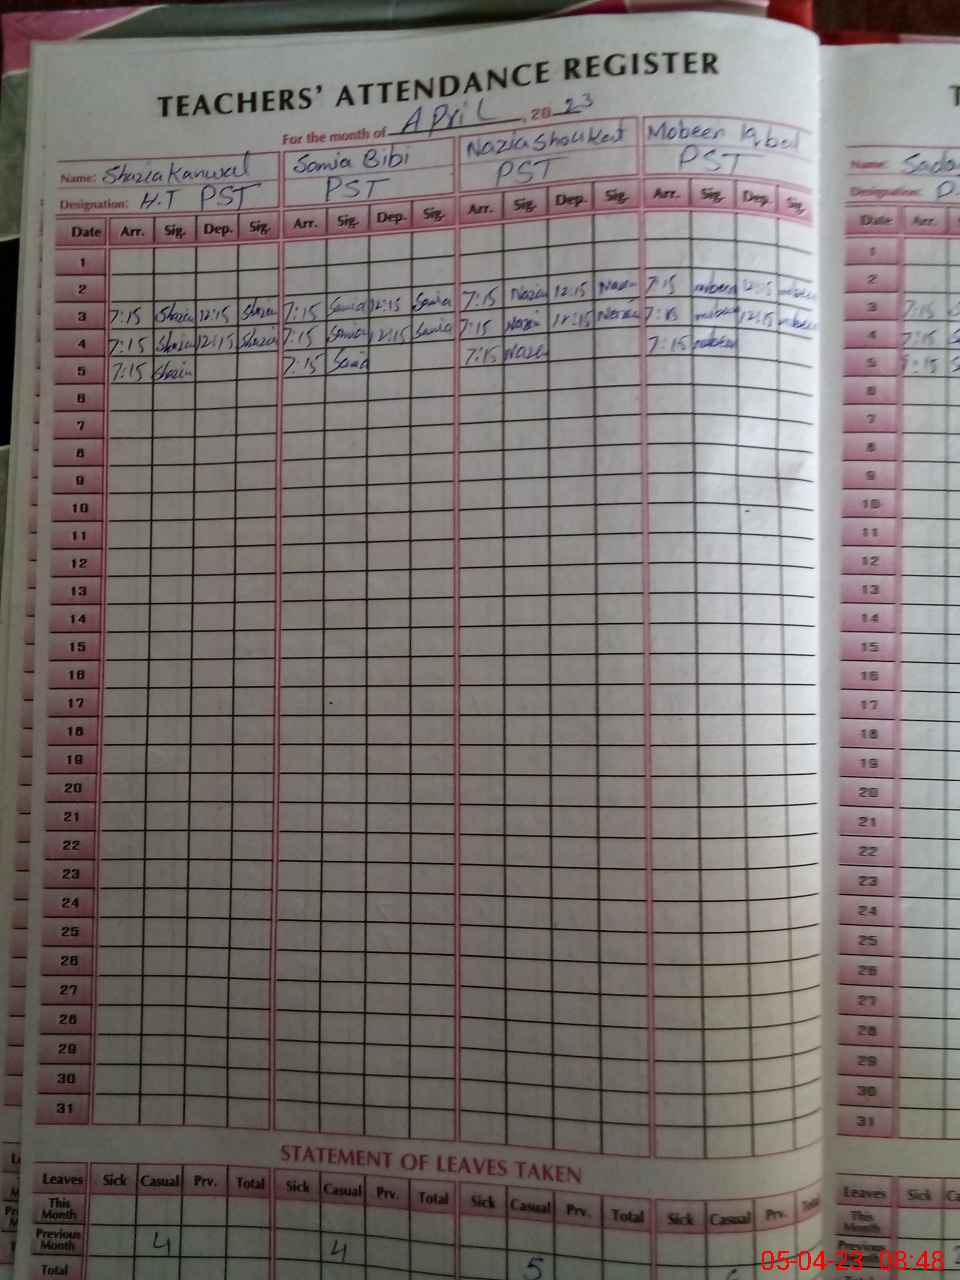 TEACHERS' ATTENDANCE REGISTER
For the month of April, 2023
Name: Shazia Kanwal Samia Bibi Nazia Shoukat Mobeen Iqbal
Designation: H.T PST PST PST PST
Date Arr. Sig. Dep. Sig. Arr. Sig. Dep. Sig. Arr. Sig. Dep. Sig. Arr. Sig. Dep. Sig.
1
2
3 7:15 Shazia 12:15 Shazia 7:15 Samia 12:15 Samia 7:15 Nazia 12:15 Nazia 7:15 mobeen 12:15 mobeen
4 7:15 Shazia 12:15 Shazia 7:15 Samia 12:15 Samia 7:15 Nazia 12:15 Nazia 7:15 mobeen 12:15 mobeen
5 7:15 Shazia 7:15 Samia 7:15 Nazia 7:15 mobeen
6
7
8
9
10
11
12
13
14
15
16
17
18
19
20
21
22
23
24
25
26
27
28
29
30
31
STATEMENT OF LEAVES TAKEN
Leaves Sick Casual Prv. Total Sick Casual Prv. Total Sick Casual Prv. Total Sick Casual Prv. Total
This Month
Previous Month 4 4 5
Total
Name:
Designation:
Date Arr.
1
2
3 7:15
4 7:15
5 7:15
6
7
8
9
10
11
12
13
14
15
16
17
18
19
20
21
22
23
24
25
26
27
28
29
30
31
Leaves Sick
This Month
Previous Month
05-04-23 08:48